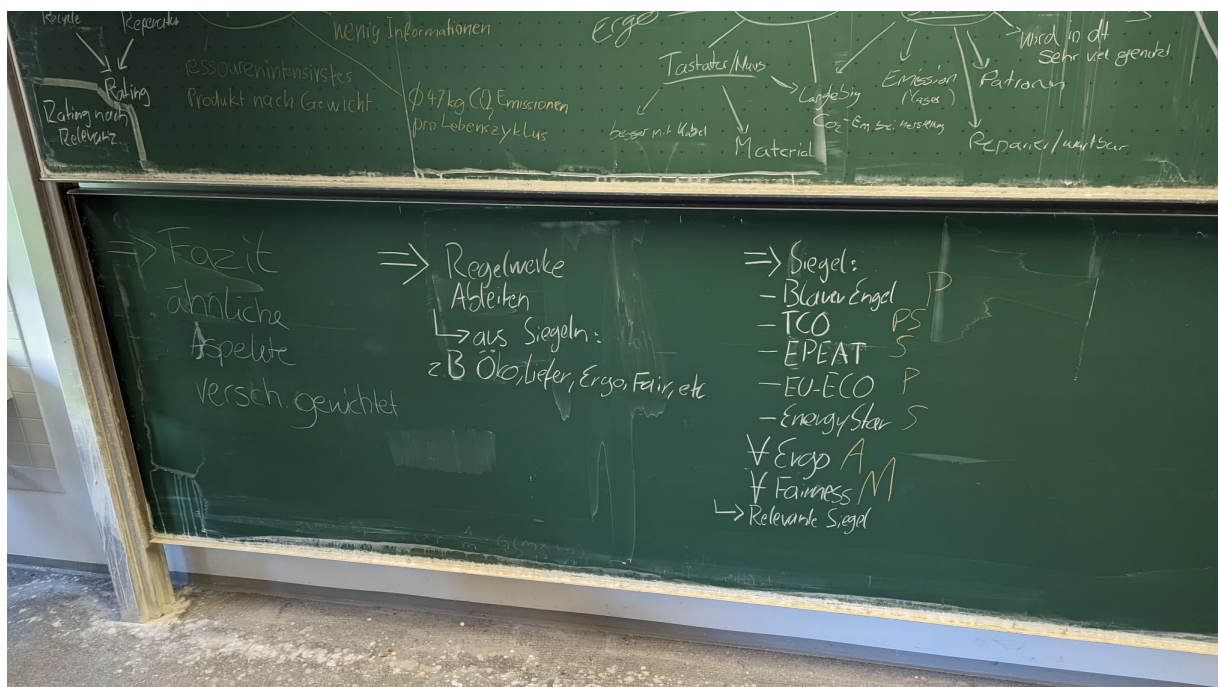 Recycle
Reparatur
Rating
Rating nach
Relevanz.
wenig Informationen
ressourenintensivstes
Produkt nach Gewicht
Ø 47kg CO2 Emissionen
pro Lebenszyklus
Ergo
Tastatur/Maus
besser mit Kabel
Material
Langlebig
CO2-Em. bei Herstellung
Emission
(Laser)
Patronen
wird in dt
Sehr viel genutzt
Reparier/wartbar
=> Fazit
ähnliche
Aspekte
versch. gewichtet
=> Regelwerke
Ableiten
↳ aus Siegeln:
z.B Öko, Liefer, Ergo, Fair, etc
=> Siegel:
- Blauer Engel P
- TCO PS
- EPEAT S
- EU-ECO P
- EnergyStar S
∀ Ergo A
∀ Fairness M
↳ Relevante Siegel